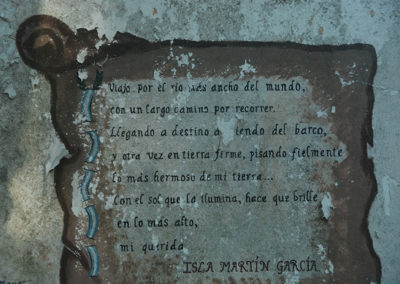 Viajo por el río más ancho del mundo,
con un largo camino por recorrer.
Llegando a destino a iendo del barco,
y otra vez en tierra firme, pisando fielmente
lo más hermoso de mi tierra...
Con el sol que la ilumina, hace que brille
en lo más alto,
mi querida
ISLA MARTÍN GARCÍA